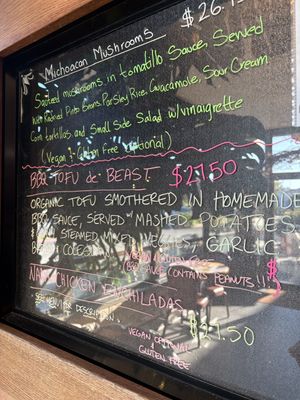 Michoacan Mushrooms
Sauteed mushrooms in tomatillo Sauce, Served
with Refried Pinto Beans, Parsley Rice, Guacamole, Sour Cream
Corn tortillas and Small Side Salad w/vinaigrette
(Vegan & Gluten Free Optional)
BBQ TOFU de BEAST $27.50
ORGANIC TOFU SMOTHERED IN HOMEMADE
BBQ SAUCE, SERVED w/ MASHED POTATOES
STEAMED MIXED VEGGIES, GARLIC
BREAD & COLESLAW
VEGAN GLUTEN FREE
(BBQ SAUCE CONTAINS PEANUTS!!)
CHICKEN ENCHILADAS
SEE DESCRIPTION
$27.50
VEGAN OPTIONAL
&
GLUTEN FREE